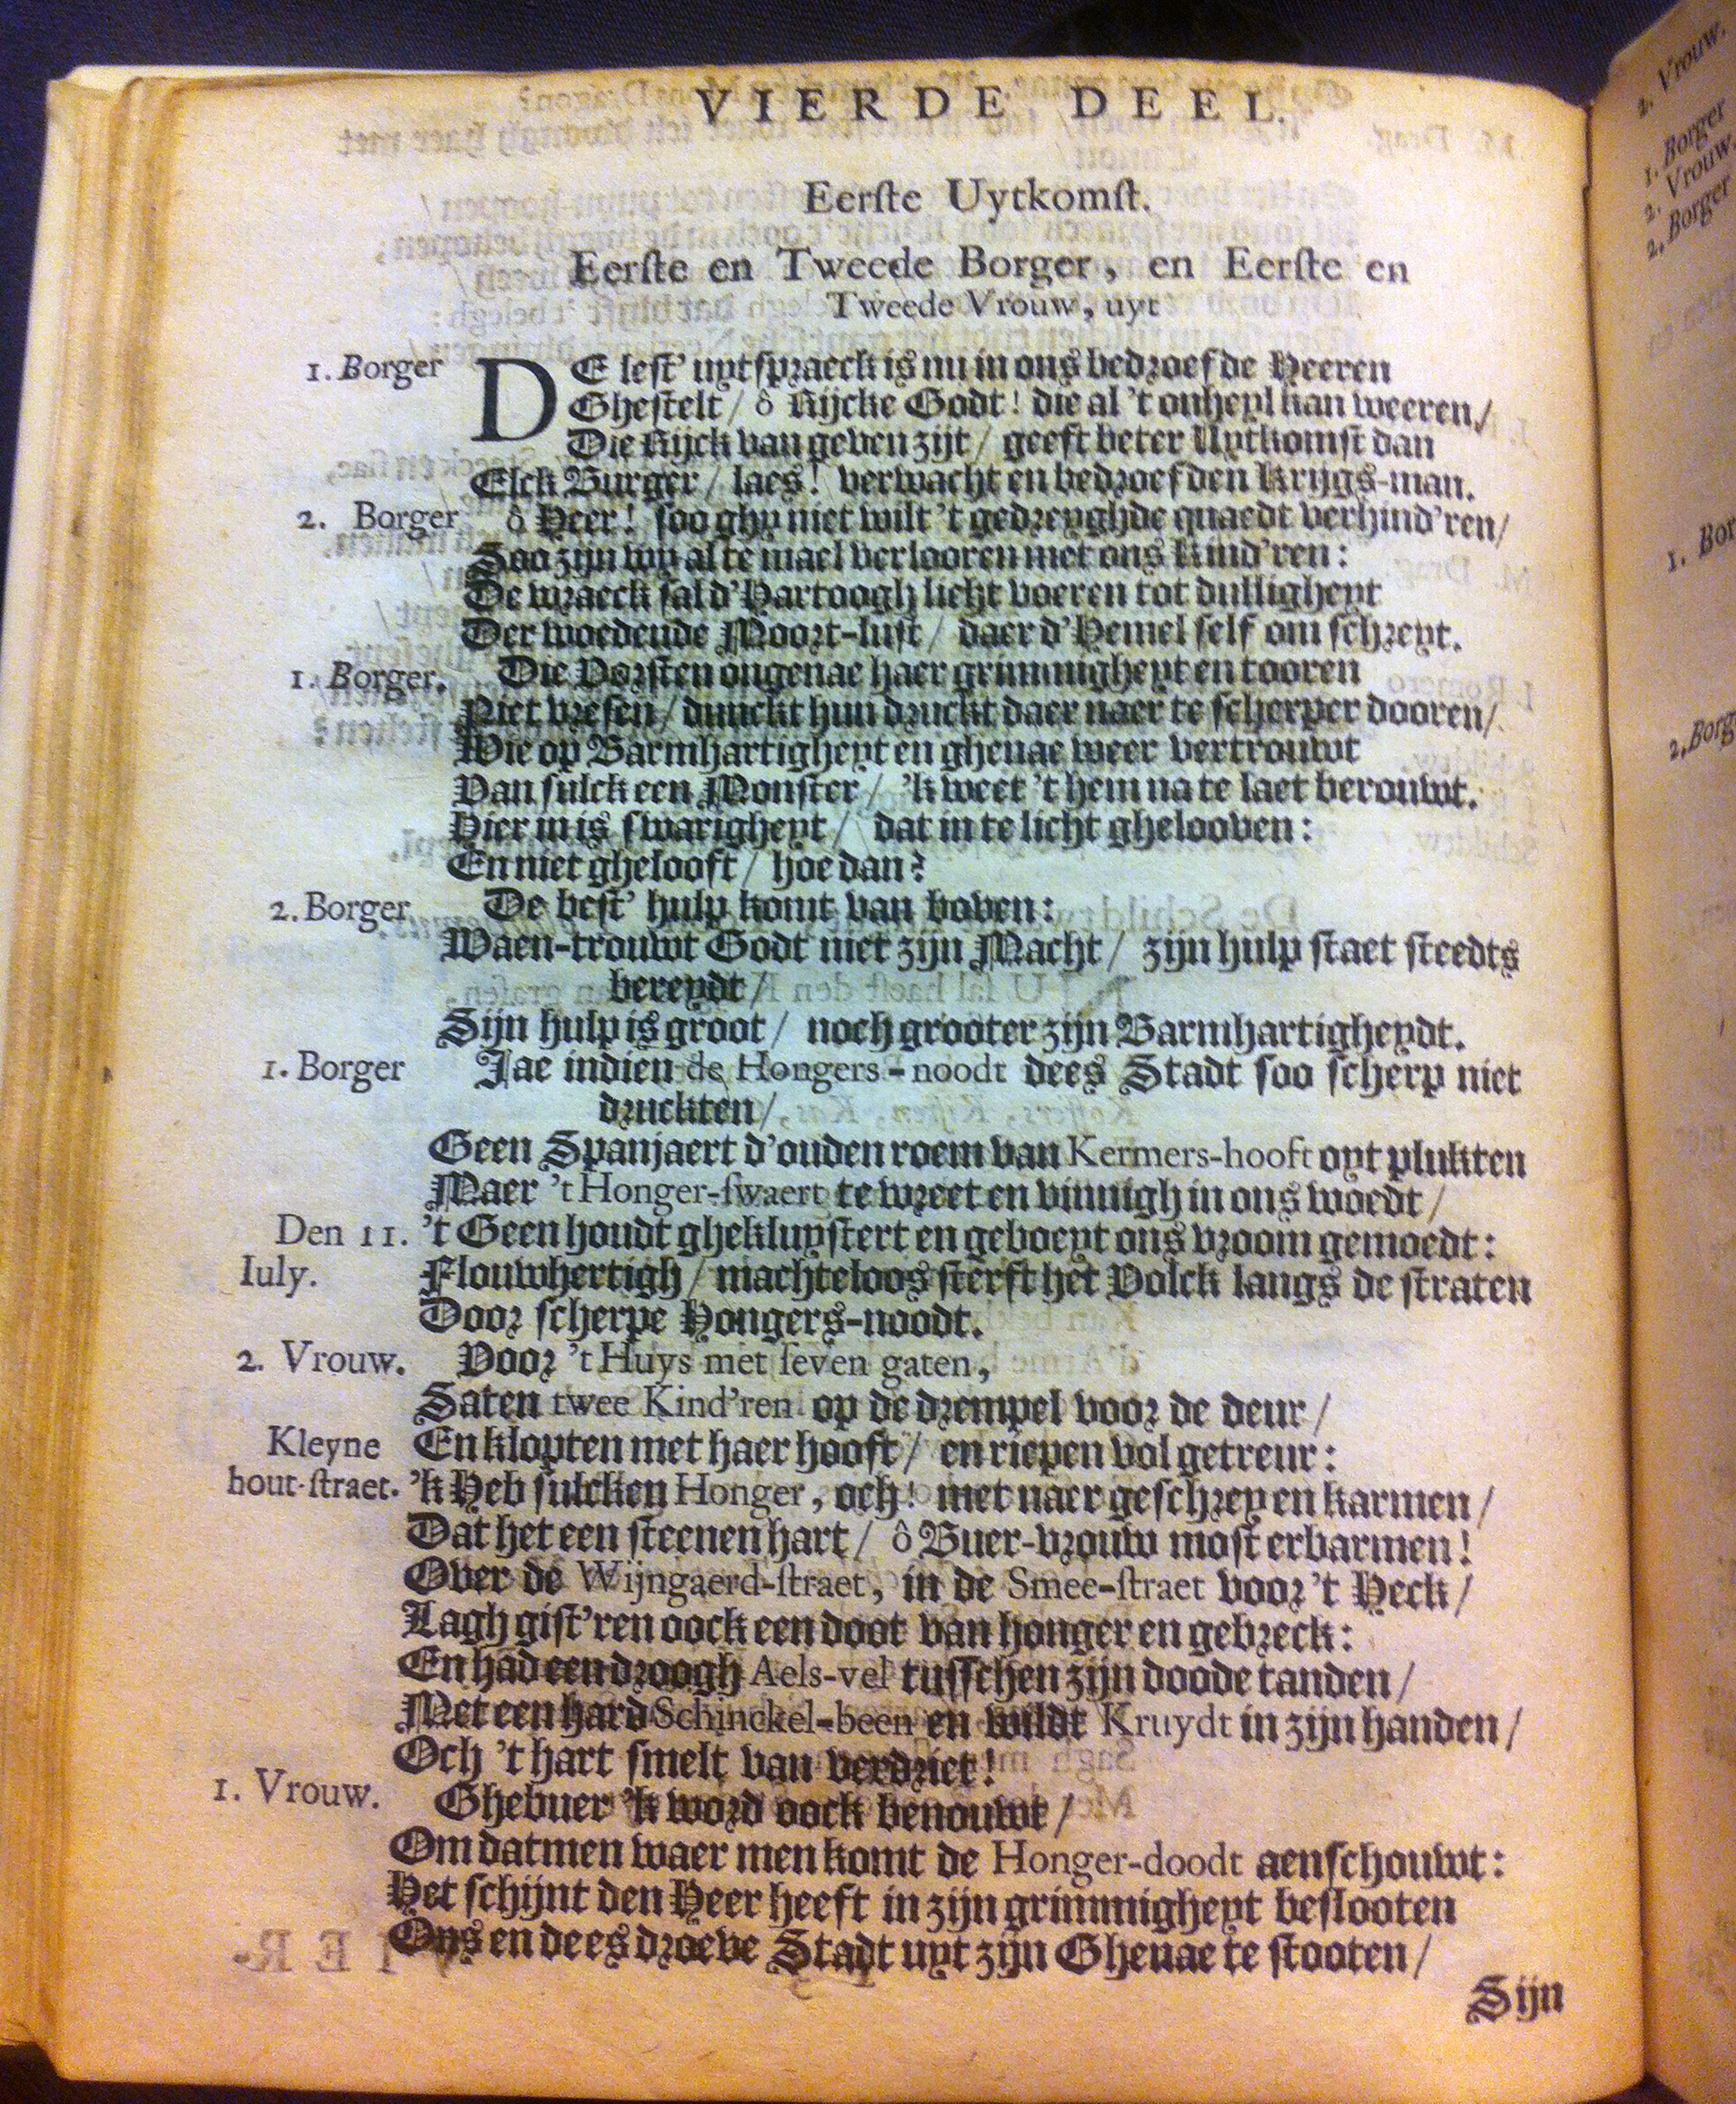 VIERDE DEEL.
Eerſte Uytkomſt.
Eerſte en Tweede Borger, en Eerſte en
Tweede Vrouw, uyt
1. Borger DE leſt' uytſpraeck is nu in ons bedroefde Heeren
Gheſtelt / ô Rijcke Godt! die al 't onheyl kan weeren /
Die Rijck van geven zijt / geeft beter Uytkomſt dan
Elck Burger / laes! verwacht en bedroefden Krygs-man.
2. Borger ô Heer! ſoo ghy niet wilt 't gedreyghde quaedt verhind'ren /
Soo zijn wy al te mael verlooren met ons Kind'ren:
De wraeck ſal d'Hartoogh licht voeren tot dulligheyt
Der woedende Moort-luſt / daer d'Hemel ſelf om ſchreyt.
1. Borger. Die Vorſten ongenae haer grimmigheyt en tooren
Niet vreſen / dunckt hun druckt daer naer te ſcherper dooren /
Wie op Barmhartigheyt en ghenae weer vertrouwt
Van ſulck een Monſter / 'k weet 't hem na te laet berouwt.
Hier in is ſwarigheyt / dat in te licht ghelooven:
En niet ghelooft / hoe dan?
2. Borger De beſt' hulp komt van boven:
Waen-trouwt Godt niet zijn Macht / zijn hulp ſtaet ſteedts
bereydt /
Sijn hulp is groot / noch grooter zijn Barmhartigheydt.
1. Borger Jae indien de Hongers-noodt dees Stadt ſoo ſcherp niet
druckten /
Geen Spanjaert d'ouden roem van Kermers-hooft oyt plukten
Maer 't Honger-ſwaert te wreet en vinnigh in ons woedt /
Den 11. 't Geen houdt ghekluyſtert en geboeyt ons vroom gemoedt:
Iuly. Flouwhertigh / machteloos ſterft het Volck langs de ſtraten
Door ſcherpe Hongers-noodt.
2. Vrouw. Voor 't Huys met ſeven gaten,
Saten twee Kind'ren op de drempel voor de deur /
Kleyne En klopten met haer hooft / en riepen vol getreur:
hout-ſtraet. 'k Heb ſulcken Honger, och! met naer geſchrey en karmen /
Dat het een ſteenen hart / ô Buer-vrouw moſt erbarmen!
Over de Wijngaerd-ſtraet, in de Smee-ſtraet voor 't Heck /
Lagh giſt'ren oock een doot van honger en gebreck:
En had een droogh Aels-vel tuſſchen zijn doode tanden /
Met een hard Schinckel-been en wildt Kruydt in zijn handen /
Och 't hart ſmelt van verdriet!
1. Vrouw. Ghebuer 'k word oock benouwt /
Om datmen waer men komt de Honger-doodt aenſchouwt:
Het ſchijnt den Heer heeft in zijn grimmigheyt beſlooten
Ons en dees droeve Stadt uyt zijn Ghenae te ſtooten /
Sijn
2. Vrouw.
1. Borger
2. Vrouw.
2. Borger
1. Bor
2. Borg